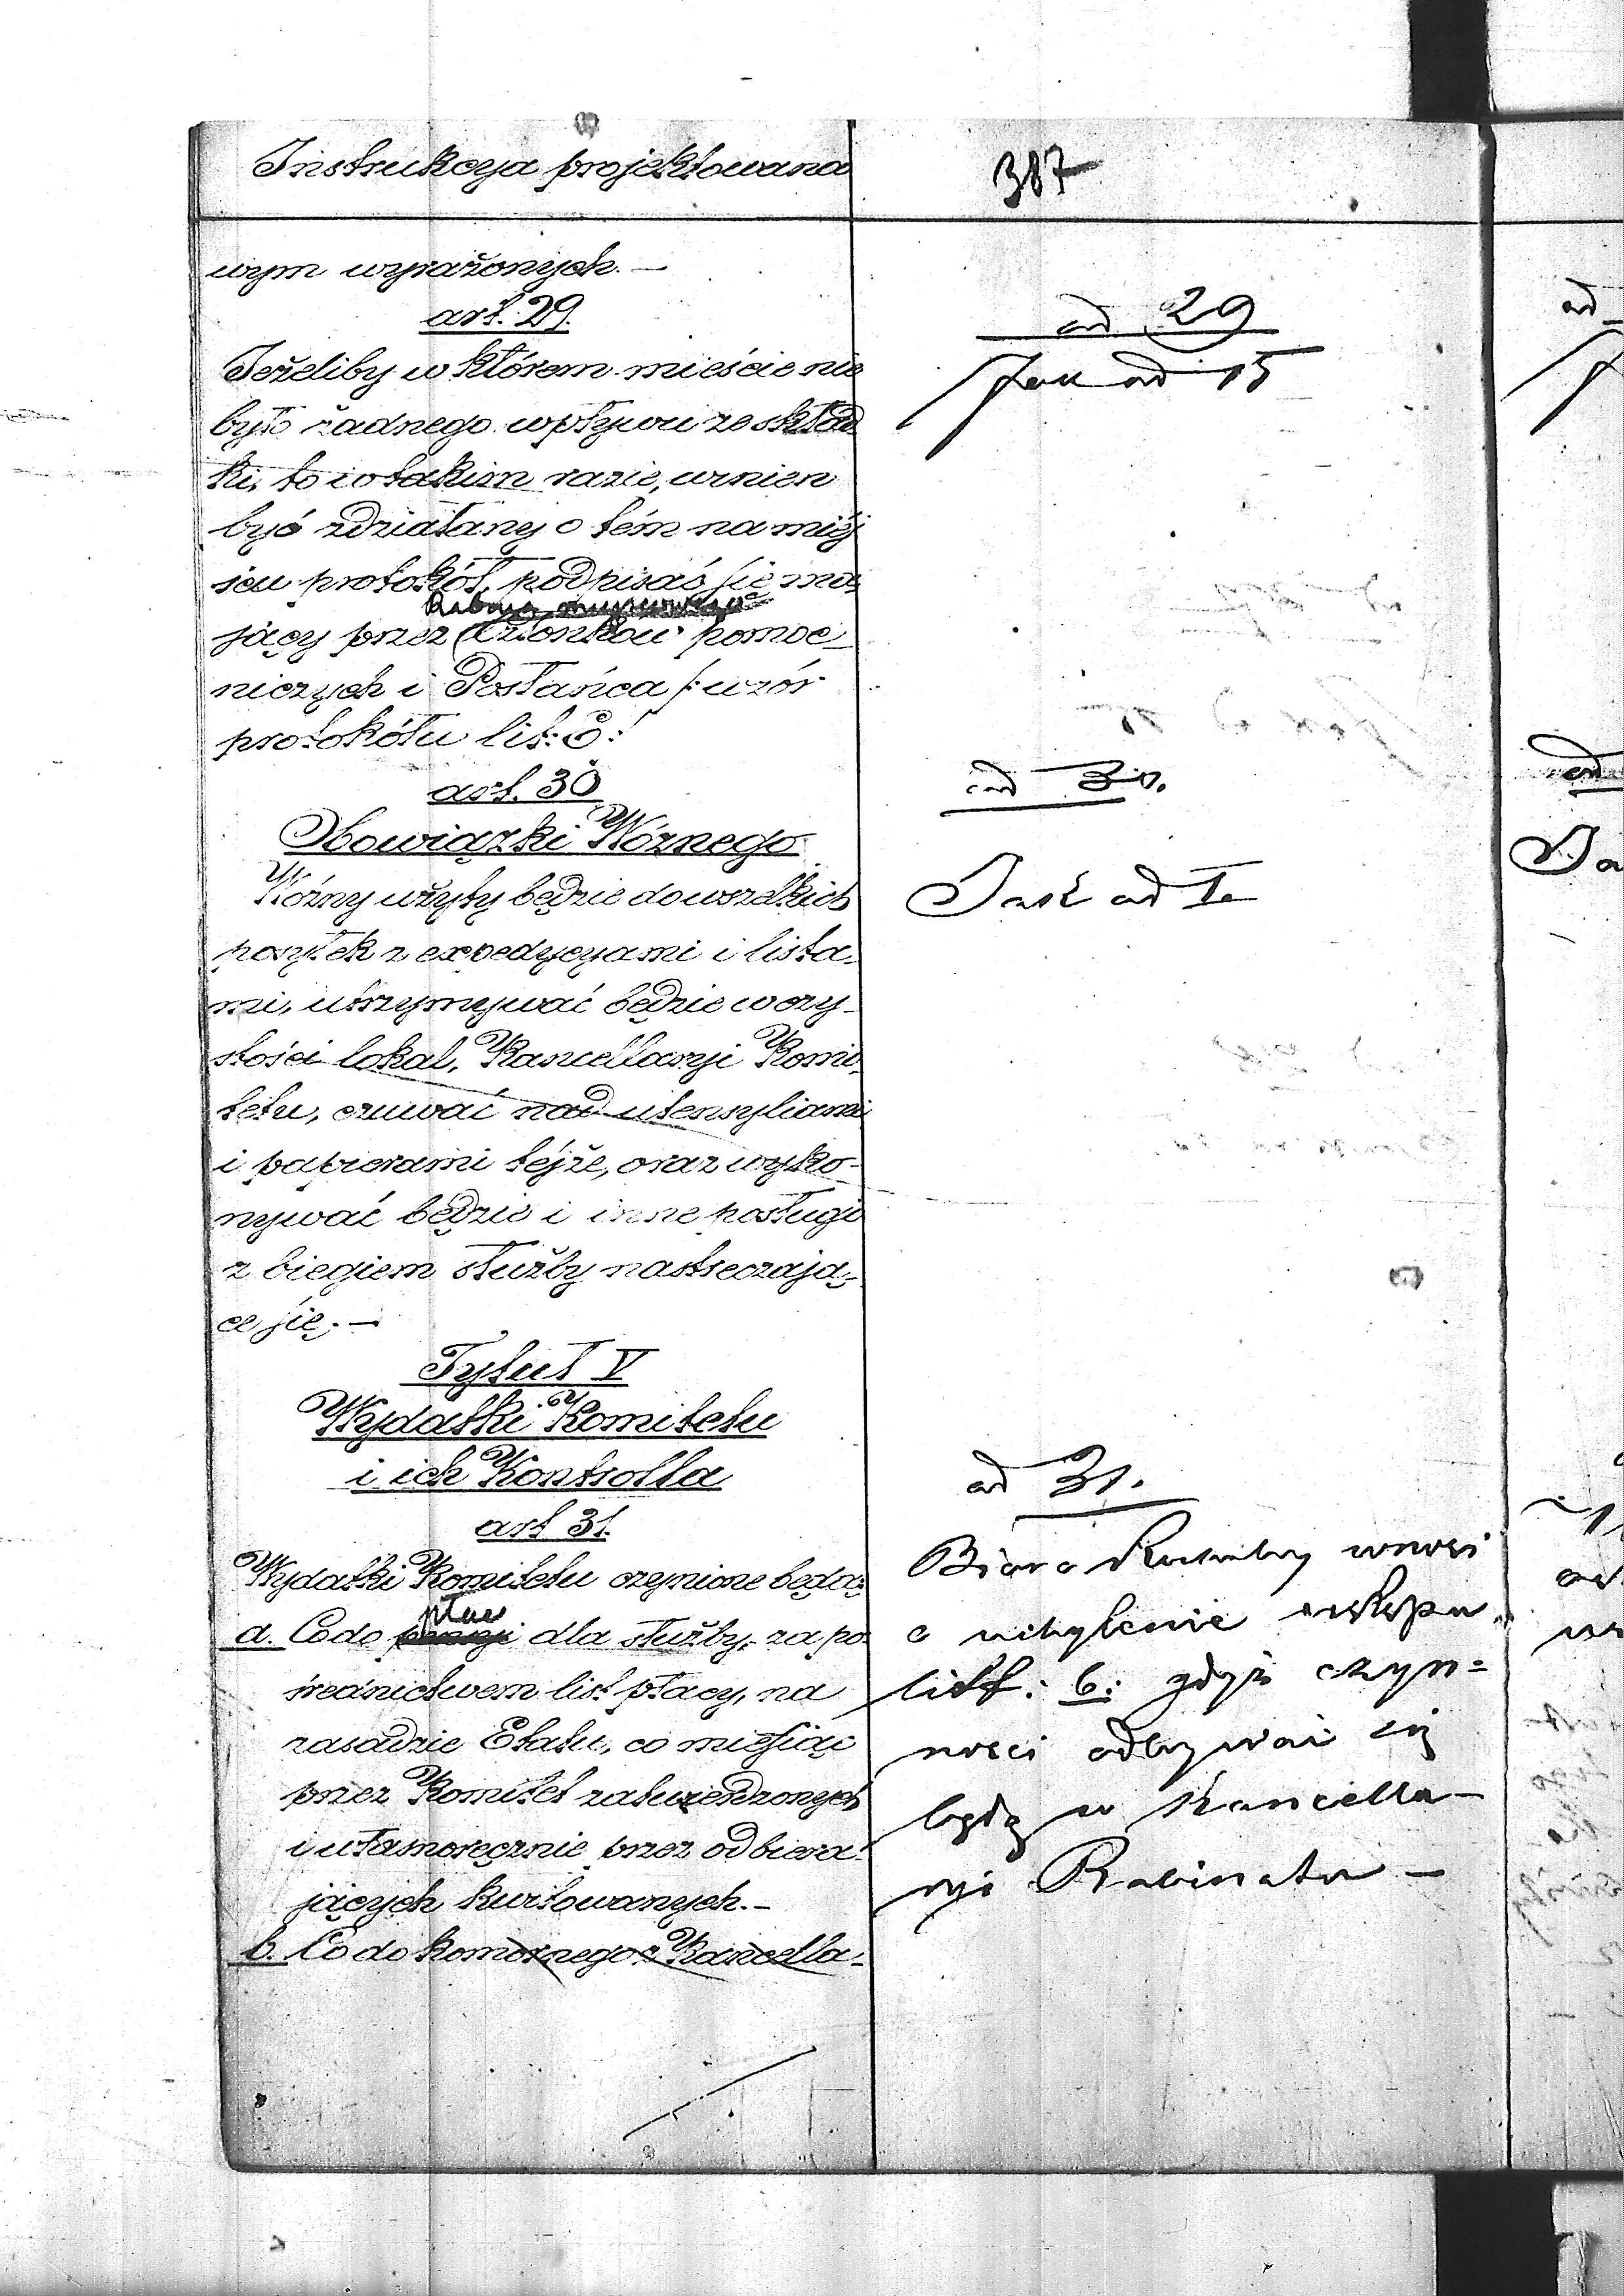 Instrukcya projektowana
387
wym wyrażonych. —
art. 29.
Jeżeliby w którem mieście nie
było żadnego wpływu ze skład
ki, to w takim razie, winien
być zdziałany o tém na miéj
scu protokół, podpisać się ma
jący przez Członków pomoc
niczych i Posłańca /: wzór
protokółu lit: E:/
art. 30
Obowiązki Woźnego
Woźny użyty będzie do wszelkich
posyłek z expedycyami i lista
mi, utrzymywać będzie w czy-
stości lokal, Kancellaryi Komi
tetu, czuwać nad utensyliami
i papierami téjże, oraz wyko-
nywać będzie i inne posługi
z biegiem służby nastręczają-
ce się. —
Tytuł V
Wydatki Komitetu
i ich Kontrolla
art 31.
Wydatki Komitetu czynione będą:
płac
a. Co do pensji dla służby, za po
średnictwem list płacy, na
zasadzie Etatu, co miesiąc
przez Komitet zatwierdzonych
i własnoręcznie przez odbiera
jących kwitowanych. —
b. Co do komornego z Kancella-
ad 29
Jak ad 15
ad 30.
Jak ad
ad 31.
Biuro wnosi
o uchylenie ustępu
litt: b: gdyż czyn=
ności odbywać się
będą w Kancella-
ryi Rabinatu —